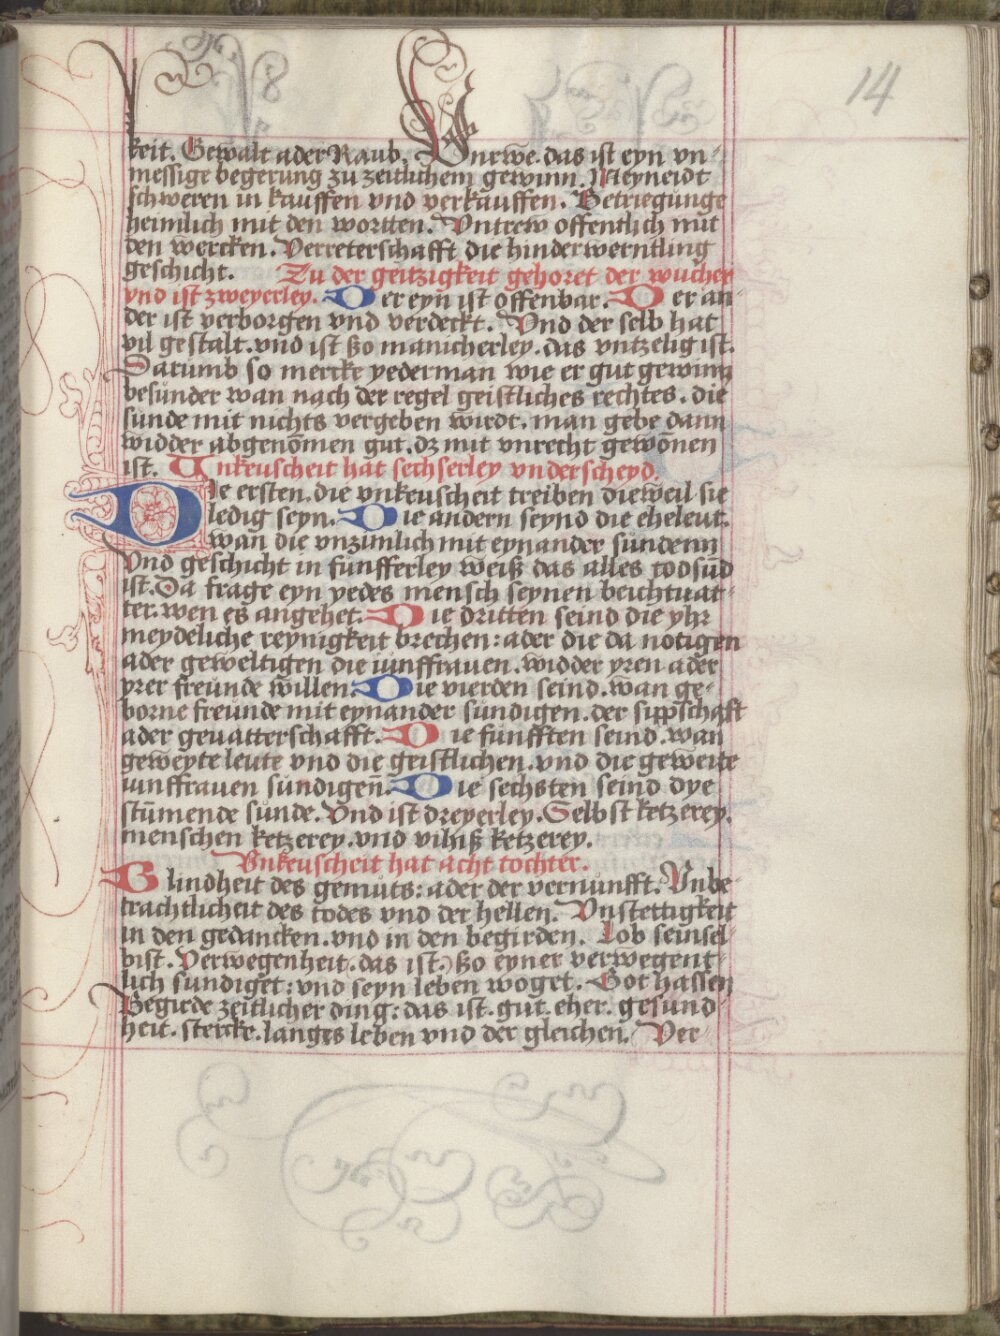 14
keit. Gewalt ader Raub. Vnrwe. das ist eyn vn-
messige begerung zu zeitlichem gewinn. Meyneidt
schweren in kauffen vnd verkauffen. Betriegunge
heimlich mit den wortten. Vntrew offentlich mit
den wercken. Verreterschafft die hinderwerntling
geschicht. Zu der geitzigkeit gehoret der wucher
vnd ist zweyerley. Der eyn ist offenbar. Der an-
der ist verborgen vnd verdeckt. Vnd der selb hat
vil gestalt. vnd ist ßo manicherley. das vntzelig ist.
Darumb so mercke yederman wie er gut gewinn
besunder wan nach der regel geistliches rechtes. die
sunde mit nichts vergeben wirdt. man gebe dann
widder abgenōmen gut. dz mit vnrecht gewōnen
ist. Vnkeuscheit hat sechserley vnderscheyd.
Die ersten. die vnkeuscheit treiben dieweil sie
ledig seyn. Die andern seynd die eheleut.
wan die vnzimlich mit eynander sundenn
Vnd geschicht in funfferley weiß das alles todsūd
ist. Da frage eyn yedes mensch seynen beichtuat-
ter. wen es angehet. Die dritten seind die yhr
meydeliche reynigkeit brechen: ader die da notigen
ader geweltigen die iunffrauen. widder yren ader
yrer freunde willen. Die vierden seind. wan ge-
borne freunde mit eynander sundigen. der sippschaft
ader geuatterschafft. Die funfften seind. wan
geweyte leute vnd die geistlichen. vnd die geweite
iunffrauen sundigeñ. Die sechsten seind dye
stūmende sunde. Vnd ist dreyerley. Selbst ketzerey.
menschen ketzerey. vnd vihiß ketzerey.
Vnkeuscheit hat acht tochter.
Blindheit des gemuts: ader der vernunfft. Vnbe-
trachtlicheit des todes vnd der hellen. Vnstettigkeit
in den gedancken. vnd in den begirden. Lob seinsel-
bist. Verwegenheit. das ist. ßo eyner verwegent-
lich sundiget: vnd seyn leben woget. Got hassen
Begirde zeitlicher ding: das ist. gut. eher. gesund-
heit. stercke. langes leben vnd der gleichen. Ver